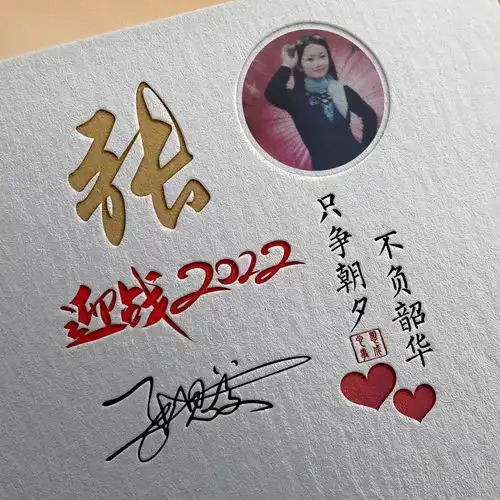 张
迎战2022
只争朝夕
不负韶华